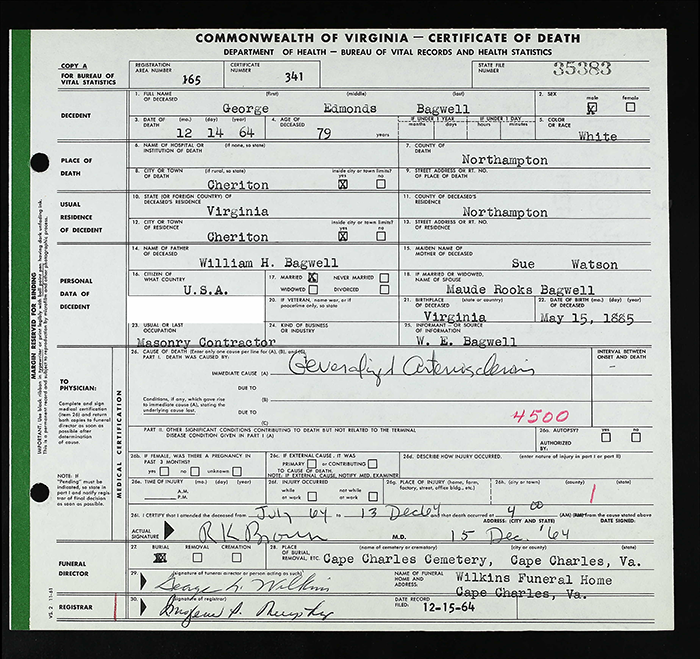 COMMONWEALTH OF VIRGINIA — CERTIFICATE OF DEATH
DEPARTMENT OF HEALTH — BUREAU OF VITAL RECORDS AND HEALTH STATISTICS
COPY A
FOR BUREAU OF VITAL STATISTICS
REGISTRATION AREA NUMBER 165
CERTIFICATE NUMBER 341
STATE FILE NUMBER 35383
DECEDENT
1. FULL NAME OF DECEASED (first) (middle) (last)
George Edmonds Bagwell
2. SEX male X female
3. DATE OF DEATH (mo.) (day) (year)
12 14 64
4. AGE OF DECEASED 79 years
IF UNDER 1 YEAR months days
IF UNDER 1 DAY hours minutes
5. COLOR OR RACE
White
PLACE OF DEATH
6. NAME OF HOSPITAL OR INSTITUTION OF DEATH (if none, so state)
7. COUNTY OF DEATH
Northampton
8. CITY OR TOWN OF DEATH (if rural, so state) inside city or town limits? yes X no
Cheriton
9. STREET ADDRESS OR RT. NO. OF PLACE OF DEATH
USUAL RESIDENCE OF DECEDENT
10. STATE (OR FOREIGN COUNTRY) OF DECEASED'S RESIDENCE
Virginia
11. COUNTY OF DECEASED'S RESIDENCE
Northampton
12. CITY OR TOWN OF RESIDENCE inside city or town limits? yes X no
Cheriton
13. STREET ADDRESS OR RT. NO. OF RESIDENCE
PERSONAL DATA OF DECEDENT
14. NAME OF FATHER OF DECEASED
William H. Bagwell
15. MAIDEN NAME OF MOTHER OF DECEASED
Sue Watson
16. CITIZEN OF WHAT COUNTRY
U.S.A.
17. MARRIED X NEVER MARRIED
WIDOWED DIVORCED
18. IF MARRIED OR WIDOWED, NAME OF SPOUSE
Maude Rooks Bagwell
20. IF VETERAN, name war, or if peacetime only, so state
21. BIRTHPLACE (state or country)
Virginia
22. DATE OF BIRTH (mo.) (day) (year)
May 15, 1885
23. USUAL OR LAST OCCUPATION
Masonry Contractor
24. KIND OF BUSINESS OR INDUSTRY
25. INFORMANT - OR SOURCE OF INFORMATION
W. E. Bagwell
MARGIN RESERVED FOR BINDING
TO PHYSICIAN:
Complete and sign medical certification (item 26) and return both copies to funeral director as soon as possible after determination of cause.
NOTE: If "Pending" must be indicated, so state in part I and notify registrar of final decision as soon as possible
MEDICAL CERTIFICATION
26. CAUSE OF DEATH (Enter only one cause per line for (A), (B), and (C))
PART I. DEATH WAS CAUSED BY:
INTERVAL BETWEEN ONSET AND DEATH
IMMEDIATE CAUSE (A) Generalized Arteriosclerosis
DUE TO
Conditions, if any, which gave rise to immediate cause (A), stating the underlying cause last. (B)
DUE TO
(C)
4500
PART II. OTHER SIGNIFICANT CONDITIONS CONTRIBUTING TO DEATH BUT NOT RELATED TO THE TERMINAL DISEASE CONDITION GIVEN IN PART I (A)
26a. AUTOPSY? yes no
AUTHORIZED BY:
26b. IF FEMALE, WAS THERE A PREGNANCY IN PAST 3 MONTHS? yes no unknown
26c. IF EXTERNAL CAUSE, IT WAS PRIMARY or CONTRIBUTING TO CAUSE OF DEATH.
NOTE: IF EXTERNAL CAUSE, NOTIFY MED. EXAMINER
26d. DESCRIBE HOW INJURY OCCURRED. (enter nature of injury in part I or part II)
26e. TIME OF INJURY (mo.) (day) (year) A.M. P.M.
26f. INJURY OCCURRED while at work not while at work
26g. PLACE OF INJURY (home, farm, factory, street, office bldg., etc.)
26h. (city or town) (county) (state)
26i. I CERTIFY that I attended the deceased from July 64 to 13 Dec 64 and that death occurred at 4 00 (AM) (PM) from the cause stated above
ACTUAL SIGNATURE R K Brown M.D.
ADDRESS: DATE SIGNED:
15 Dec. '64
FUNERAL DIRECTOR
27. BURIAL X REMOVAL CREMATION
28. PLACE OF BURIAL, REMOVAL, ETC. (name of cemetery or crematory) (city or county) (state)
Cape Charles Cemetery, Cape Charles, Va.
29. (signature of funeral director or person acting as such)
George S. Wilkins
NAME OF FUNERAL HOME AND ADDRESS:
Wilkins Funeral Home
Cape Charles, Va.
REGISTRAR
30. (signature of registrar)
DATE RECORD FILED: 12-15-64
VS. 2 11-61